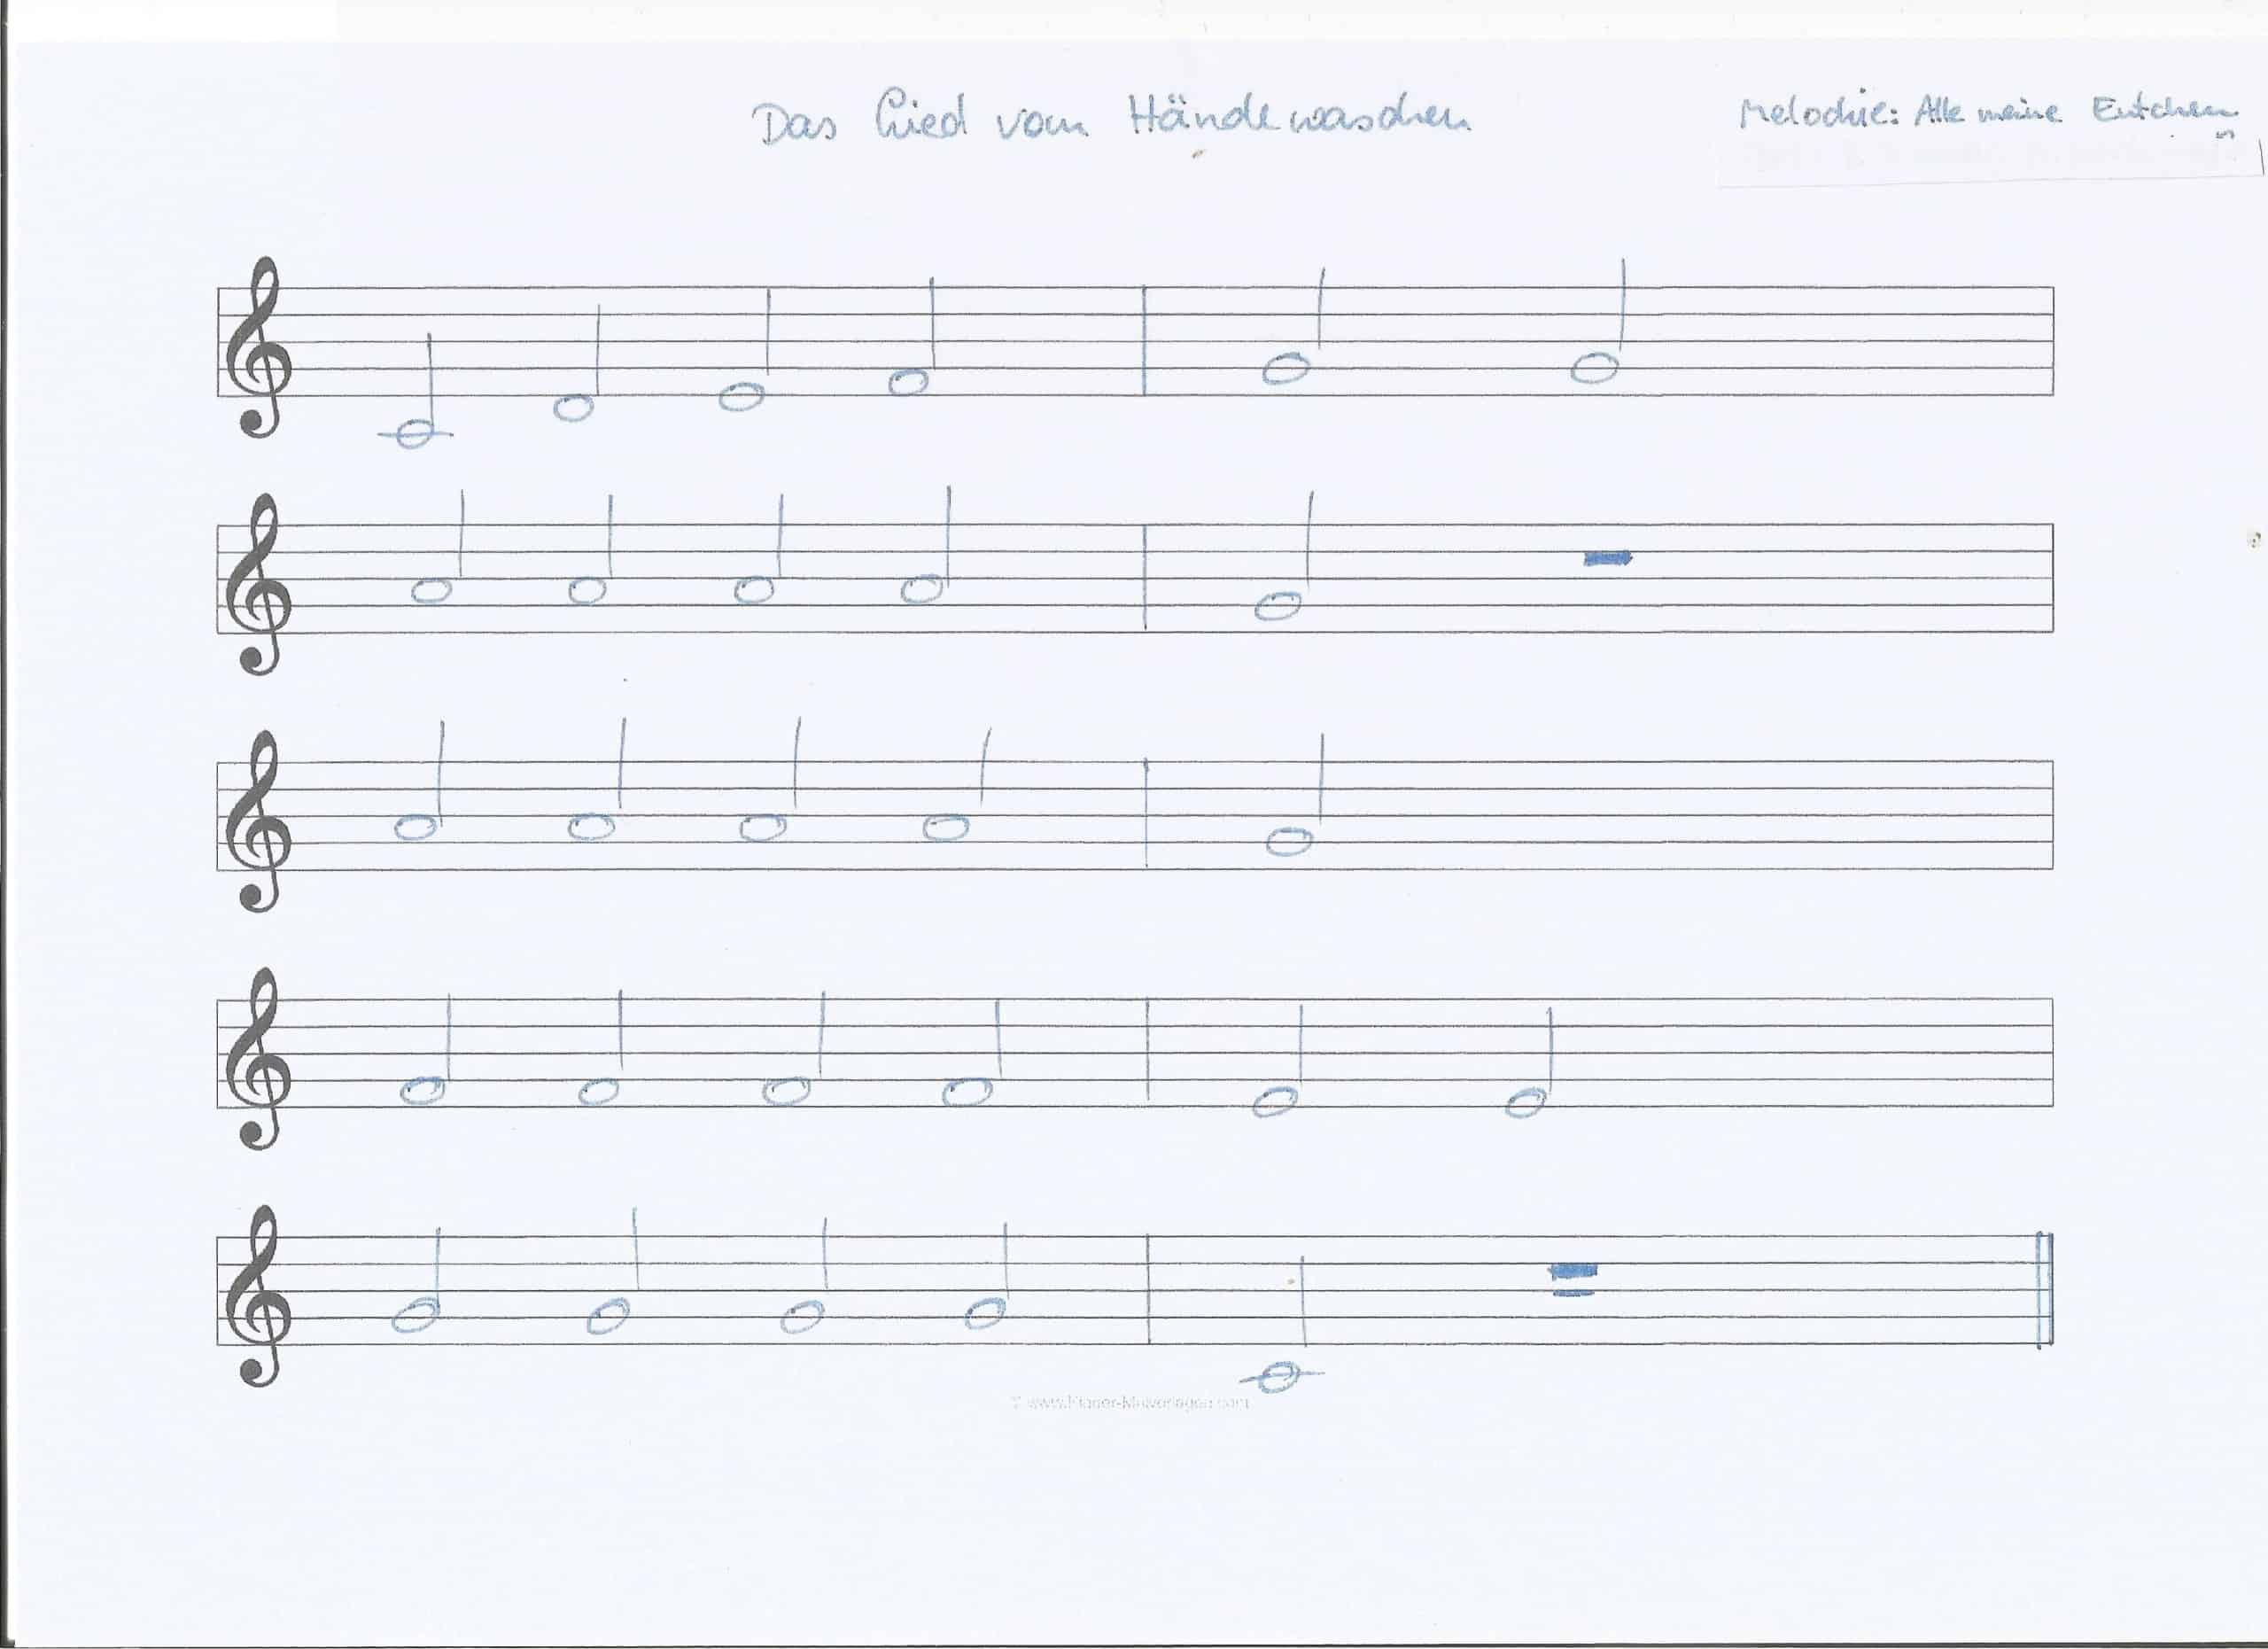 Das Lied vom Händewaschen
Melodie: Alle meine Entchen
© www.Kinder-Malvorlagen.com